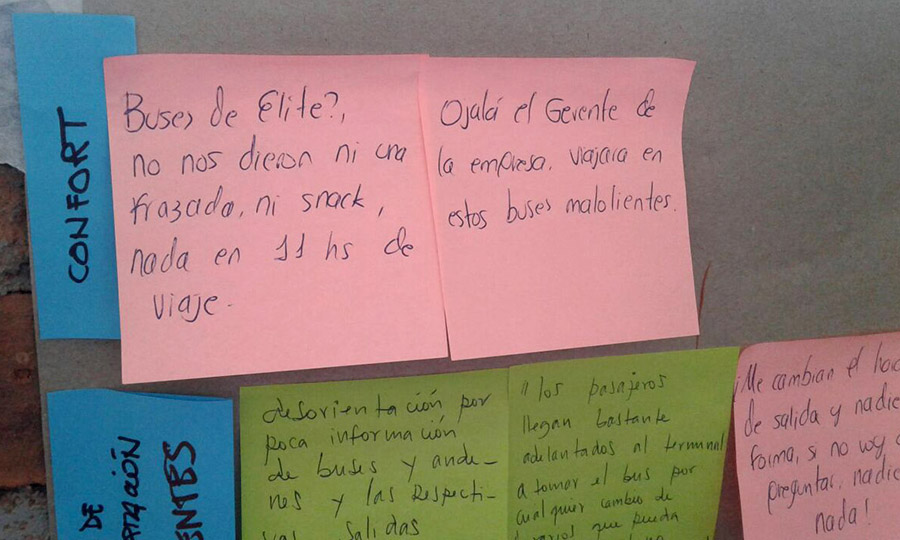 CONFORT
Buses de Elite?,
no nos dieron ni una
frazada, ni snack,
nada en 11 hs de
viaje.
Ojalá el Gerente de
la empresa, viajara en
estos buses malolientes.
DE
desorientación por
poca información
de buses y ande-
nes y las respecti-
vas salidas
"los pasajeros
llegan bastante
adelantados al terminal
a tomar el bus por
cualquier cambio de
que pueda
¡Me cambian el
de salida y nadie
forma, si no voy a
preguntar, nadie
nada!